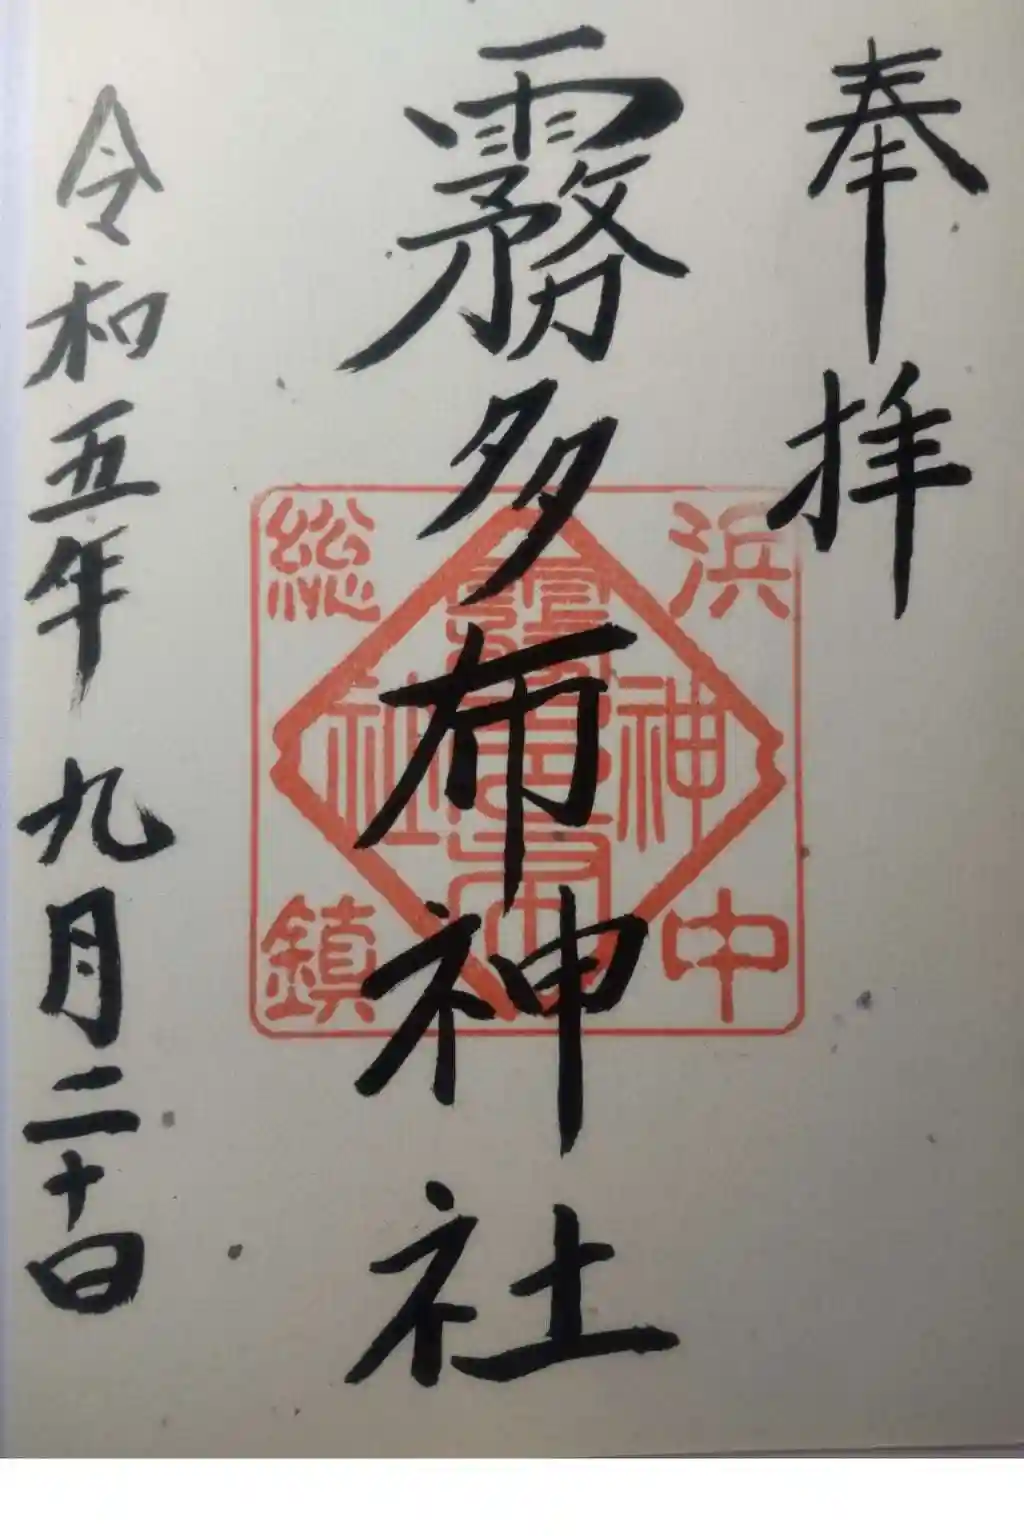 奉拝
霧多布神社
令和五年九月二十日
浜中
総鎮
神社
霧多布